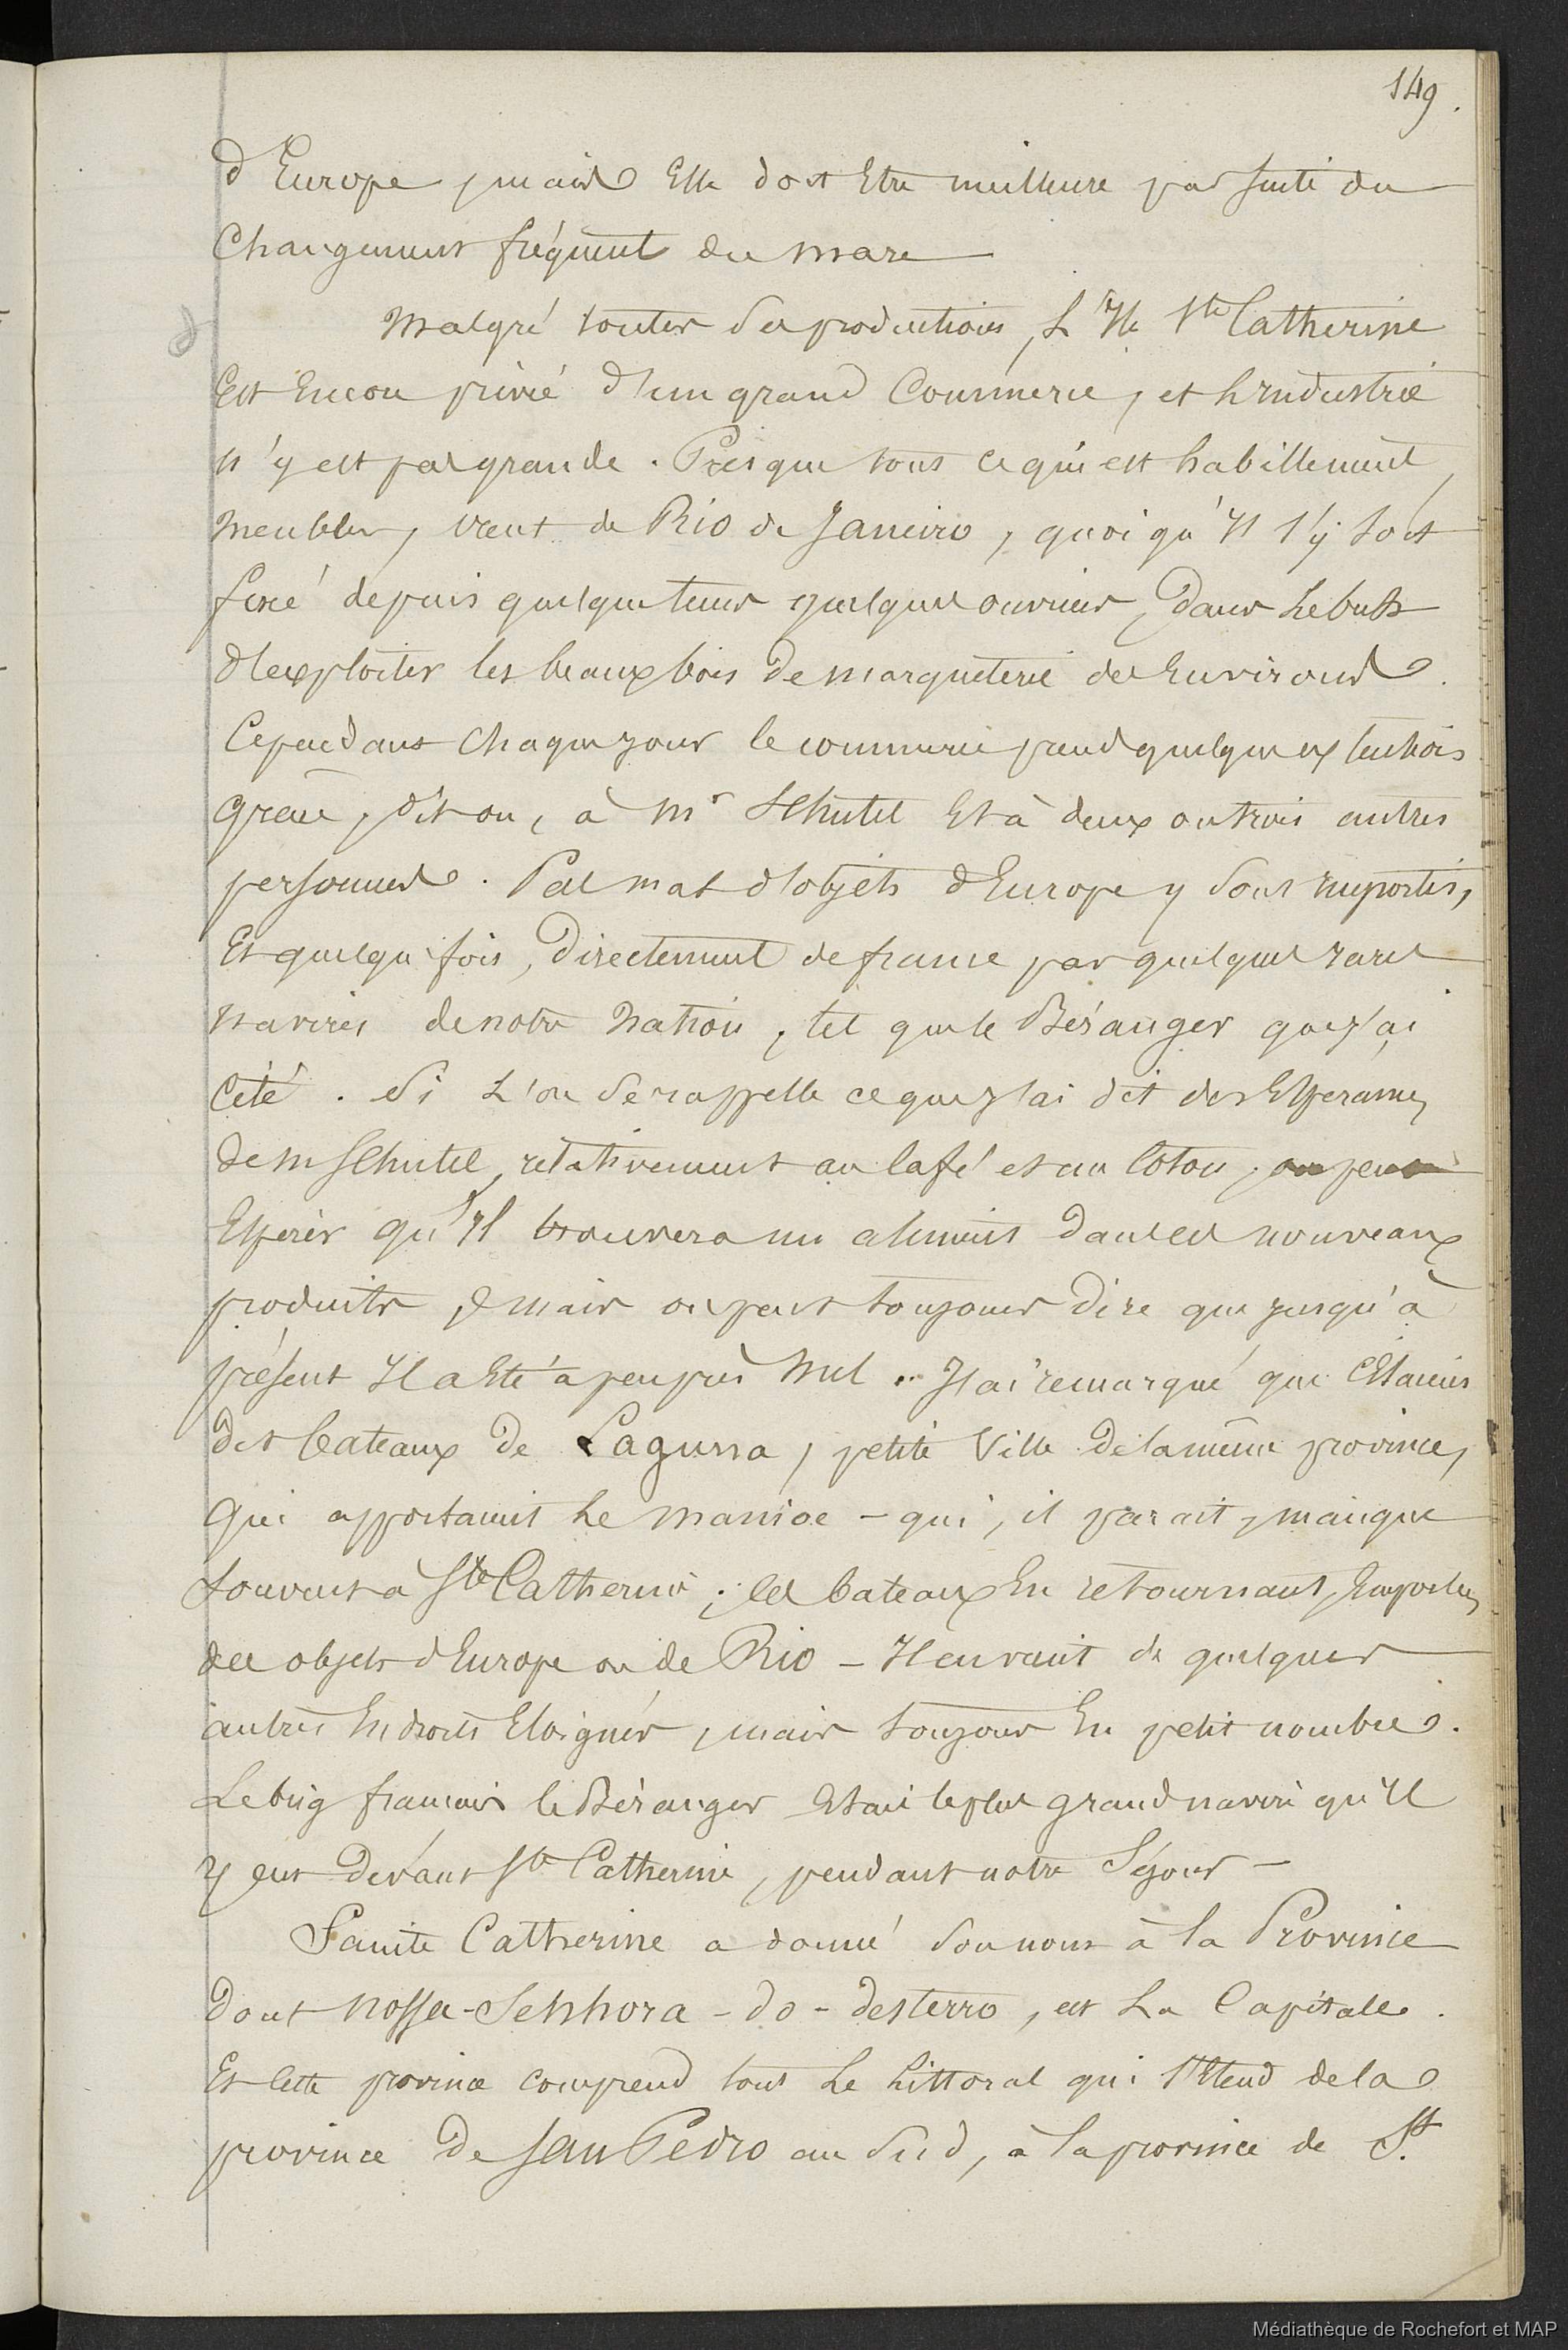 149.
d'Europe, mais Elle doit Etre meilleure par suite du
Changement fréquent du mare
Malgré toutes ses productions, L'Ile Ste Catherine
Est Encore privé d'un grand Commerce, et L'Industrie
n'y est pas grande. Presque tous ce qui est habillement,
meubles, vient de Rio de Janeiro, quoi qu'Il s'y soit
fixé depuis quelque tems quelques ouvriers, dans Le but
d'exploiter les beaux bois de marqueterie des Environs.
Cependant chaque jour le commerce prend quelque extention
grâce, dit on, à Mr Schutel Et à deux ou trois autres
personnes. Pas mal d'objets d'Europe y sont importés,
Et quelque fois, directement de france par quelques rares
navires de notre Nation, tel que le Béranger que j'ai
Cité. Si L'on se rappelle ce que j'ai dit des Espérances
de m Schutel, relativement au Café et au Coton, on peut
Espérer qu'Il trouvera un aliment dans ces nouveaux
produits, mais on peut toujours dire que jusqu'à
présent Il a Eté à peu près Nul. J'ai remarqué que C'Etaient
des bateaux de Laguna, petite Ville de la même province,
Qui apportaient Le manioc - qui, il parait, manque
souvent à Ste Catherine; ces bateaux En retournant, Emportent
des objets d'Europe ou de Rio - Il en vient de quelques
autres Endroits Eloignés, mais toujours En petit nombre.
Le brig français le Béranger Etait le plus grand navire qu'Il
y eut devant Ste Catherine, pendant notre Séjour -
Sainte Catherine a donné son nom à la Province
dont Nossa-Senhora-do-desterro, est La Capitale.
Et Cette province comprend tout Le Littoral qui s'Etend de la
province de San Pedro au Sud, à la province de St.
Médiathèque de Rochefort et MAP